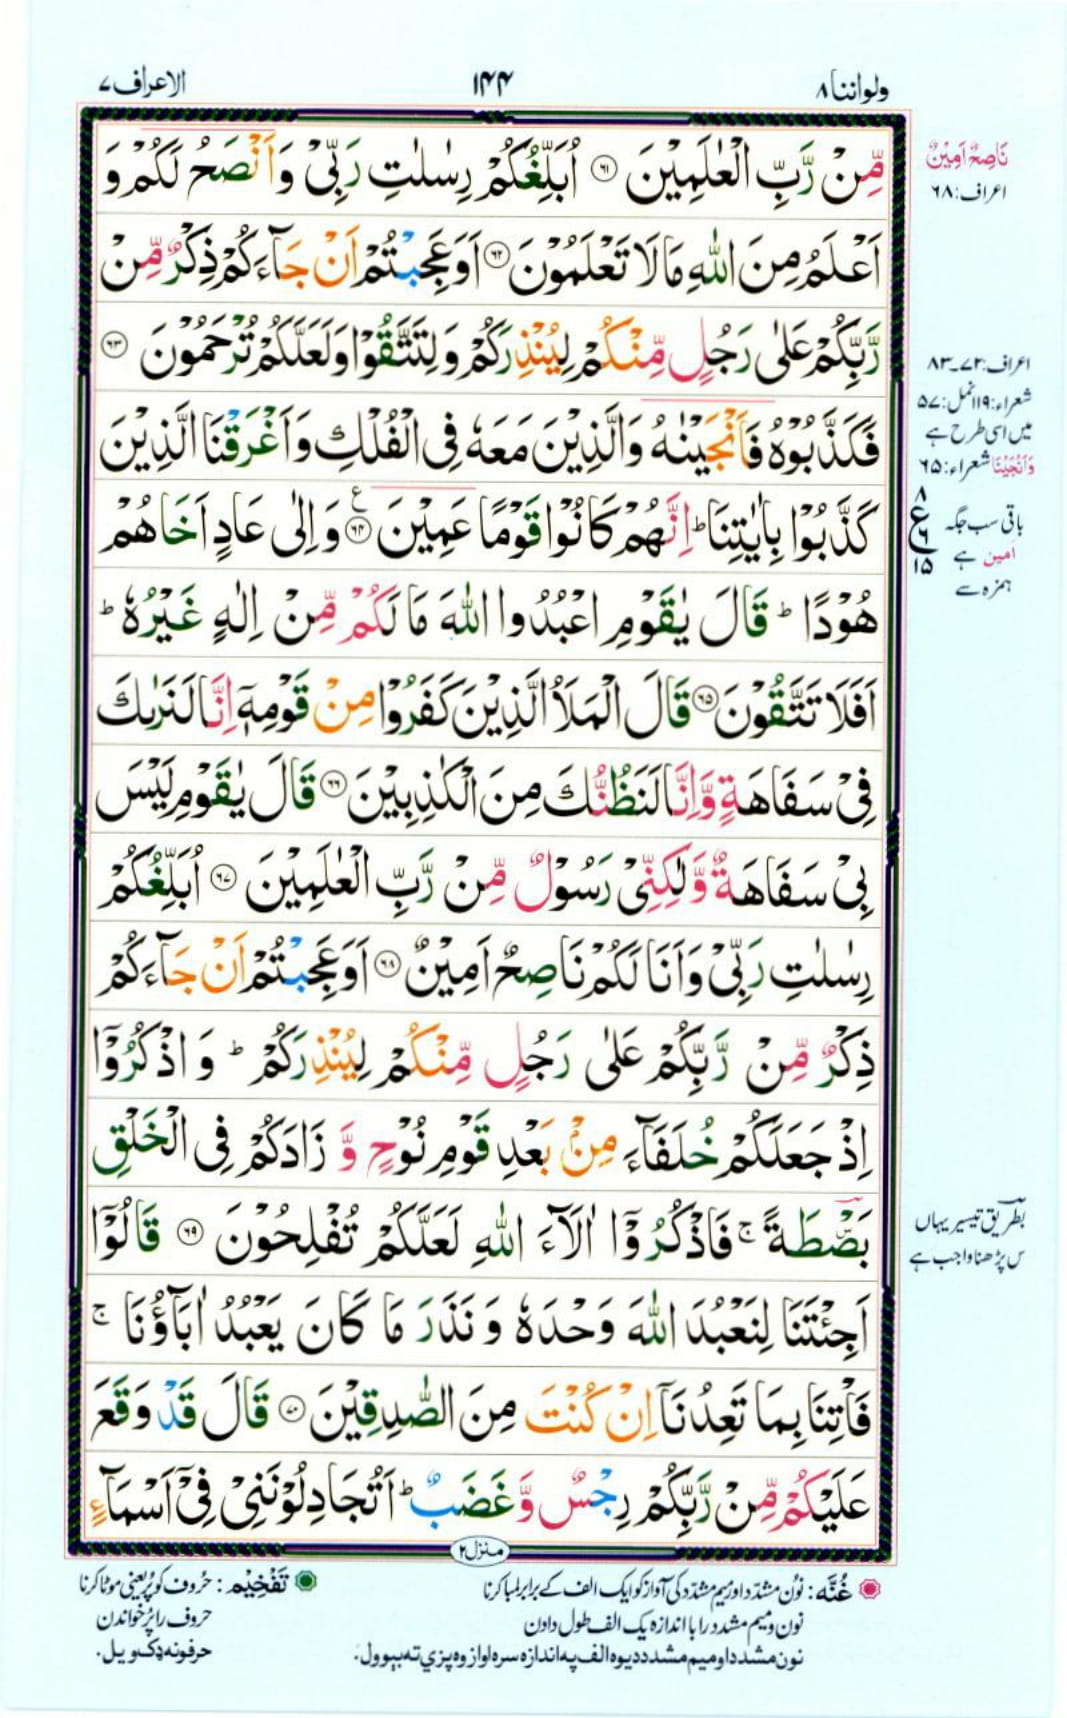 ولواننا ۸
۱۴۴
الاعراف ۷
مِّنْ رَّبِّ الْعٰلَمِيْنَ ۶۱ اُبَلِّغُكُمْ رِسٰلٰتِ رَبِّيْ وَاَنْصَحُ لَكُمْ وَ
اَعْلَمُ مِنَ اللّٰهِ مَا لَا تَعْلَمُوْنَ ۶۲ اَوَعَجِبْتُمْ اَنْ جَآءَكُمْ ذِكْرٌ مِّنْ
رَّبِّكُمْ عَلٰى رَجُلٍ مِّنْكُمْ لِيُنْذِرَكُمْ وَلِتَتَّقُوْا وَلَعَلَّكُمْ تُرْحَمُوْنَ ۶۳
فَكَذَّبُوْهُ فَاَنْجَيْنٰهُ وَالَّذِيْنَ مَعَهٗ فِي الْفُلْكِ وَاَغْرَقْنَا الَّذِيْنَ
كَذَّبُوْا بِاٰيٰتِنَا ؕ اِنَّهُمْ كَانُوْا قَوْمًا عَمِيْنَ ۶۴ ع وَاِلٰى عَادٍ اَخَاهُمْ
هُوْدًا ؕ قَالَ يٰقَوْمِ اعْبُدُوا اللّٰهَ مَا لَكُمْ مِّنْ اِلٰهٍ غَيْرُهٗ ؕ
اَفَلَا تَتَّقُوْنَ ۶۵ قَالَ الْمَلَاُ الَّذِيْنَ كَفَرُوْا مِنْ قَوْمِهٖٓ اِنَّا لَنَرٰىكَ
فِيْ سَفَاهَةٍ وَّاِنَّا لَنَظُنُّكَ مِنَ الْكٰذِبِيْنَ ۶۶ قَالَ يٰقَوْمِ لَيْسَ
بِيْ سَفَاهَةٌ وَّلٰكِنِّيْ رَسُوْلٌ مِّنْ رَّبِّ الْعٰلَمِيْنَ ۶۷ اُبَلِّغُكُمْ
رِسٰلٰتِ رَبِّيْ وَاَنَا لَكُمْ نَاصِحٌ اَمِيْنٌ ۶۸ اَوَعَجِبْتُمْ اَنْ جَآءَكُمْ
ذِكْرٌ مِّنْ رَّبِّكُمْ عَلٰى رَجُلٍ مِّنْكُمْ لِيُنْذِرَكُمْ ؕ وَ اذْكُرُوْٓا
اِذْ جَعَلَكُمْ خُلَفَآءَ مِنْۢ بَعْدِ قَوْمِ نُوْحٍ وَّ زَادَكُمْ فِي الْخَلْقِ
بَصْۜطَةً ۚ فَاذْكُرُوْٓا اٰلَآءَ اللّٰهِ لَعَلَّكُمْ تُفْلِحُوْنَ ۶۹ قَالُوْٓا
اَجِئْتَنَا لِنَعْبُدَ اللّٰهَ وَحْدَهٗ وَ نَذَرَ مَا كَانَ يَعْبُدُ اٰبَآؤُنَا ۚ
فَاْتِنَا بِمَا تَعِدُنَآ اِنْ كُنْتَ مِنَ الصّٰدِقِيْنَ ۷۰ قَالَ قَدْ وَقَعَ
عَلَيْكُمْ مِّنْ رَّبِّكُمْ رِجْسٌ وَّغَضَبٌ ؕ اَتُجَادِلُوْنَنِيْ فِيْٓ اَسْمَآءٍ
منزل ۲
نَاصِحٌ اَمِيْنٌ
اعراف: ۶۸
اعراف: ۷۲-۸۳
شعراء: ۱۱۹ نمل: ۵۷
میں اسی طرح ہے
وَاَنْجَيْنَا شعراء: ۶۵
۸
ع
۶
۱۵
باقی سب جگہ
امین ہے
ہمزہ سے
بطریق تیسیر یہاں
س پڑھنا واجب ہے
غُنَّه: نُون مشدّد اور میم مشدّد کی آواز کو ایک الف کے برابر لمبا کرنا
نون و میم مشدد را با اندازه یک الف طول دادن
نون مشدد او میم مشدد د یوه الف په اندازه سره اواز وه پزي ته بیوول.
تَفْخِيْم: حُروف کو پُر یعنی موٹا کرنا
حروف را پُر خواندن
حرفونه ډک ویل.